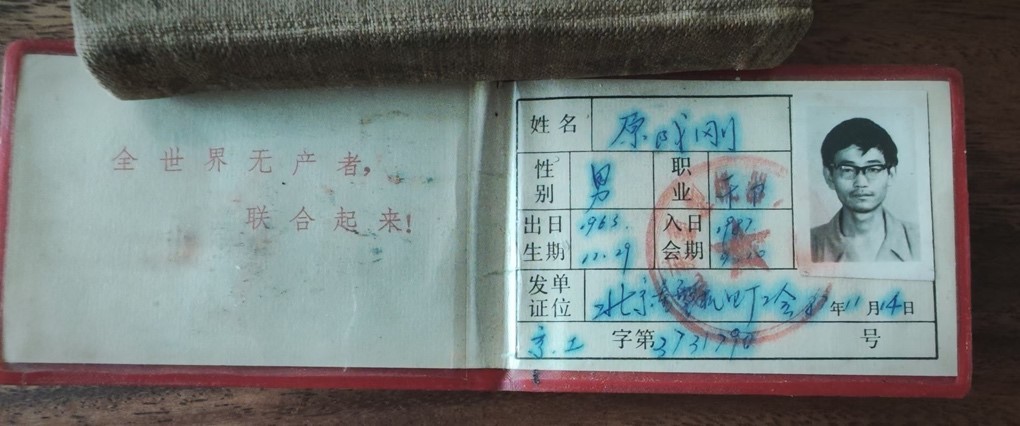 全世界无产者,
联合起来!
姓名 原 刚
性别 男 职业
出生日期 1965. 12.29 入会日期 1987
发证单位 北京 机电厂工会 87年11月14日
京.工 字第3731790号